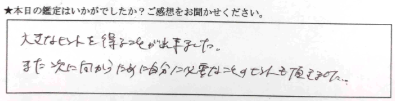 ★本日の鑑定はいかがでしたか？ご感想をお聞かせください。
大きなヒントを得ることが出来ました。
また次に向かうために自分に必要なことのヒントも頂きました。